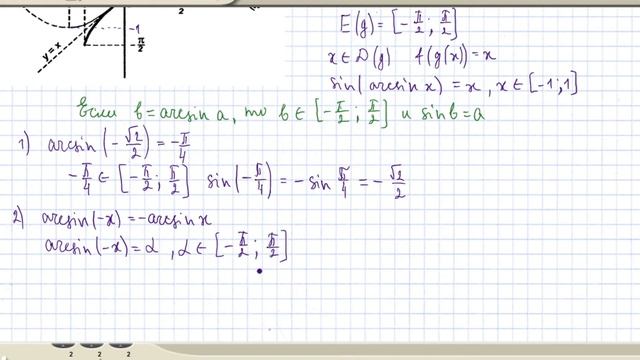 2
y=x
-1
π/2
E(g) = [-π/2; π/2]
x ∈ D(g) f(g(x)) = x
sin(arcsin x) = x, x ∈ [-1; 1]
Если b = arcsin a, то b ∈ [-π/2; π/2] и sin b = a
1) arcsin(-√2/2) = -π/4
-π/4 ∈ [-π/2; π/2] sin(-π/4) = -sin π/4 = -√2/2
2) arcsin(-x) = -arcsin x
arcsin(-x) = α, α ∈ [-π/2; π/2]
2 2 2 2